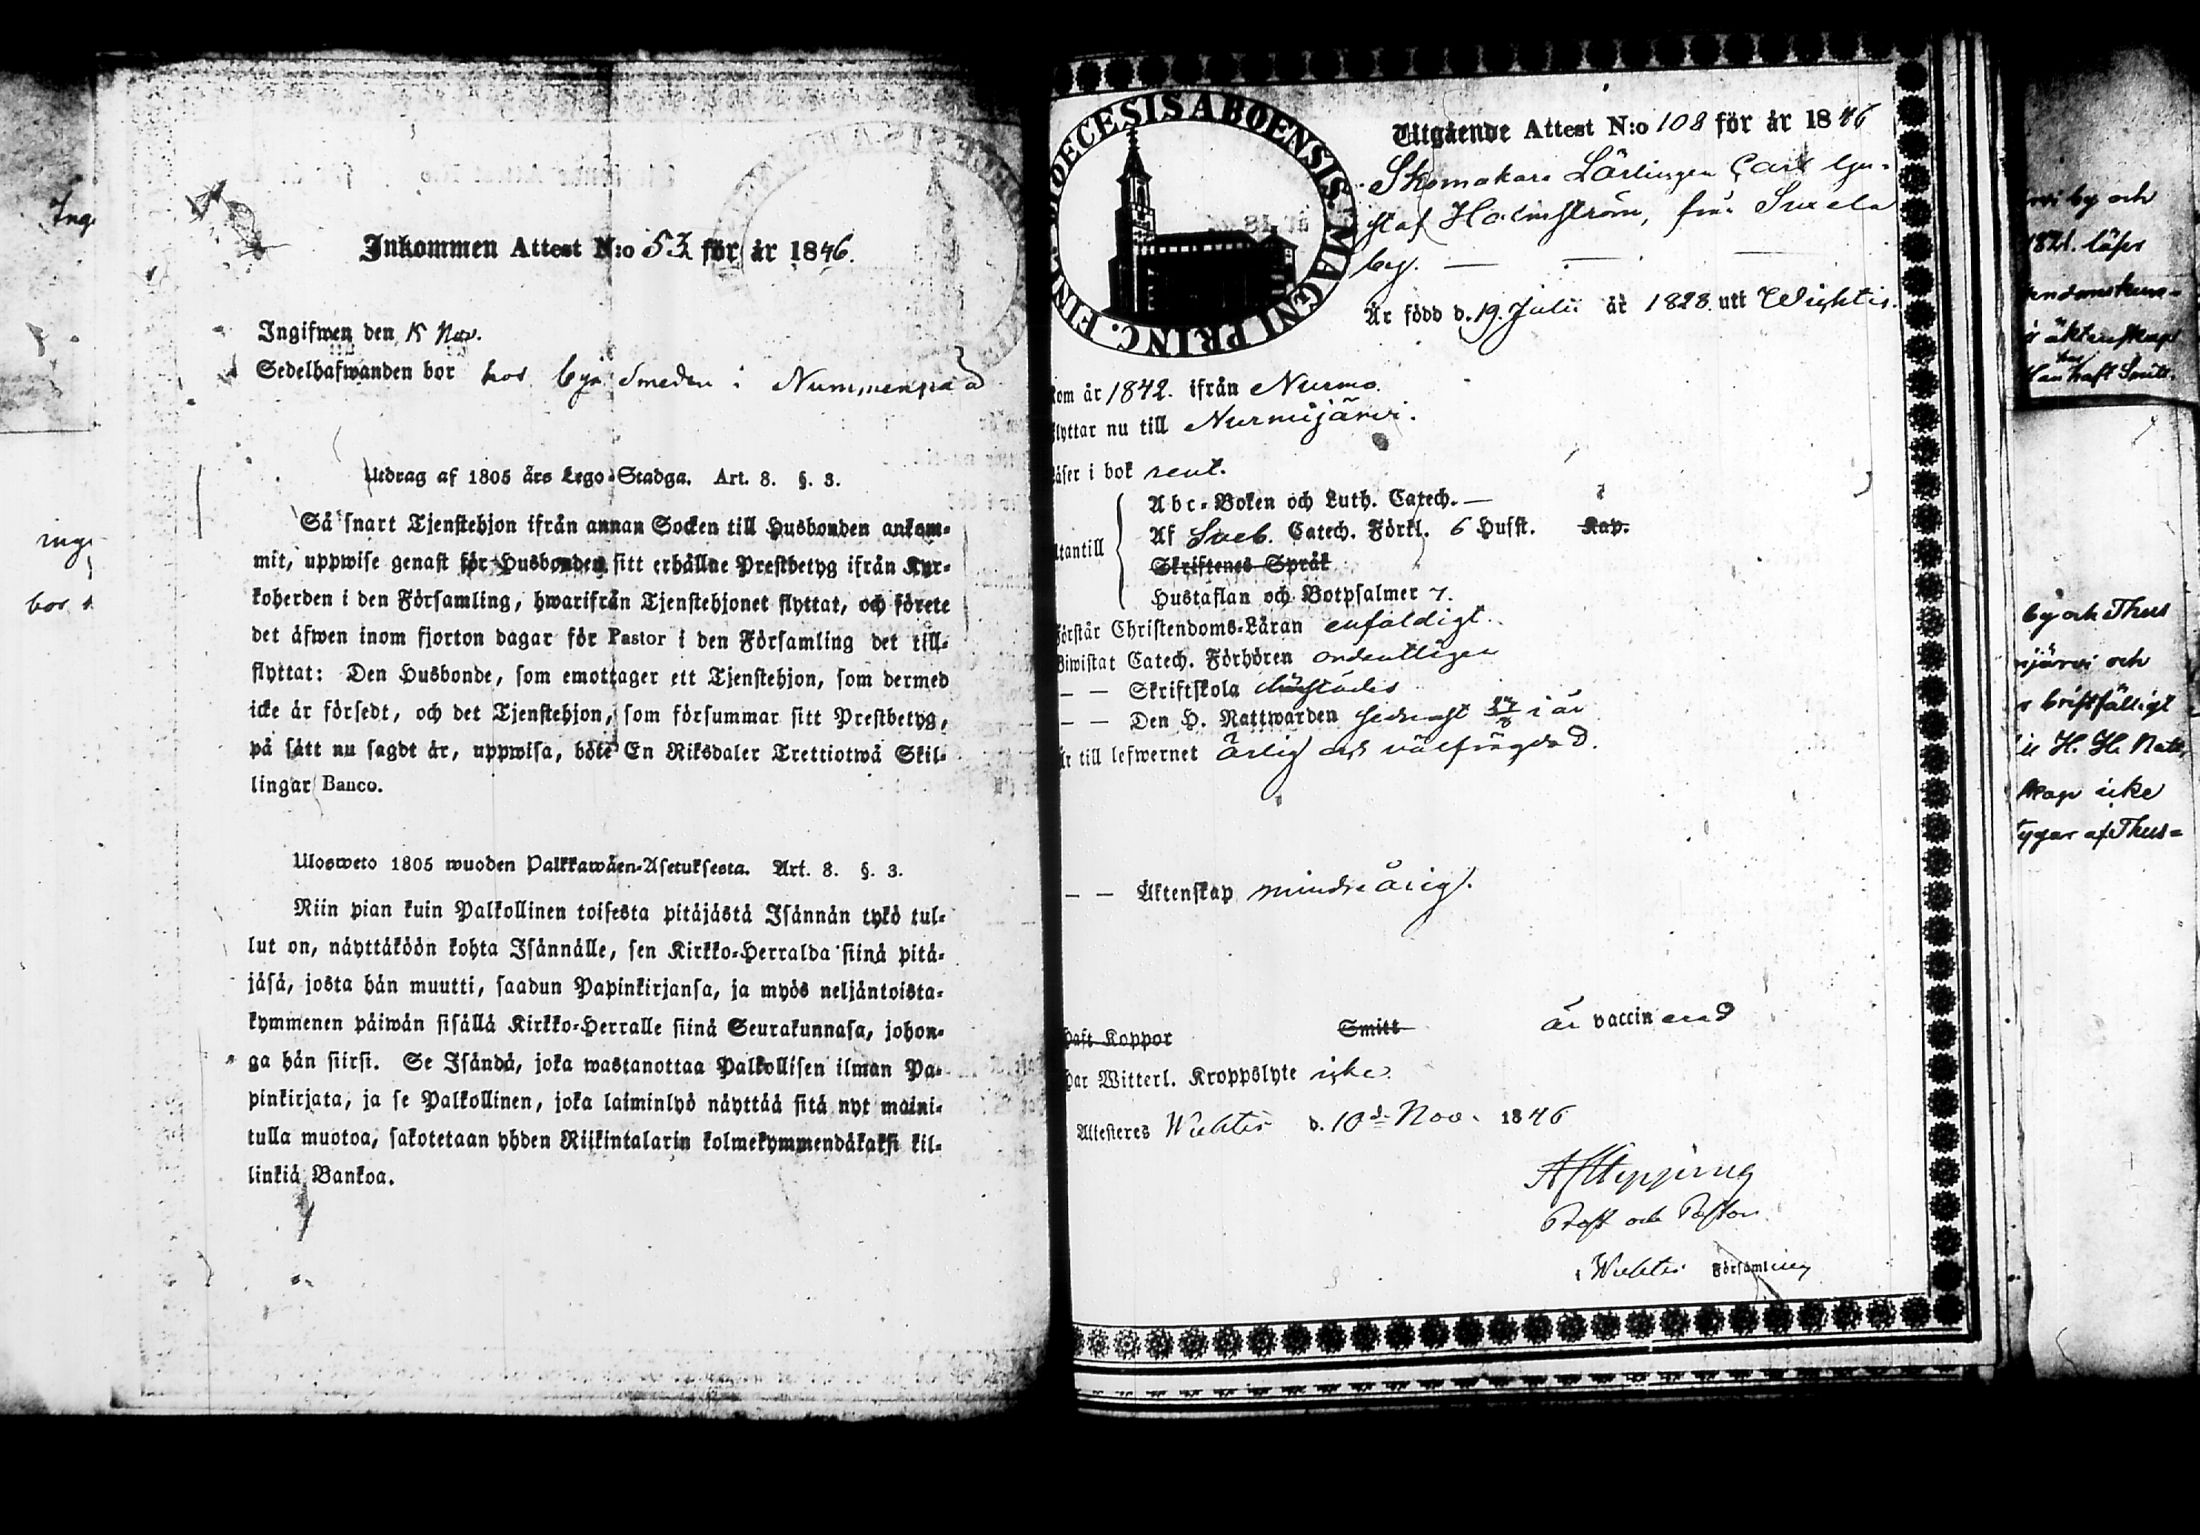 Inkommen Attest N:o 53 för år 1846.
Ingifwen den 15 Nov.
Sedelhafwanden bor hos byn Smeden i Nummenpää
Utdrag af 1805 års Lego-Stadga. Art. 8. §. 3.
Så snart Tjenstehjon ifrån annan Socken till Husbonden ankom-
mit, uppwise genast för Husbonden sitt erhållne Prestbetyg ifrån Kyr-
koherden i den Församling, hwarifrån Tjenstehjonet flyttat, och förete
det äfwen inom fjorton dagar för Pastor i den Församling det till-
flyttat: Den Husbonde, som emottager ett Tjenstehjon, som dermed
icke är försedt, och det Tjenstehjon, som försummar sitt Prestbetyg,
på sätt nu sagdt är, uppwisa, böte En Riksdaler Trettiotwå Skil-
lingar Banco.
Ulosweto 1805 wuoden Palkkawäen-Asetuksesta. Art. 8. §. 3.
Niin pian kuin Palkollinen toisesta pitäjästä Isännän tykö tul-
lut on, näyttäköön kohta Isännälle, sen Kirkko-Herralda siinä pitä-
jäsä, josta hän muutti, saadun Papinkirjansa, ja myös neljäntoista-
kymmenen päiwän sisällä Kirkko-Herralle siinä Seurakunnasa, johon-
ga hän siirsi. Se Isändä, joka wastanottaa Palkollisen ilman Pa-
pinkirjata, ja se Palkollinen, joka laiminlyö näyttää sitä nyt maini-
tulla muotoa, sakotetaan yhden Riikintalarin kolmekymmendäkaksi kil-
linkiä Bankoa.
DIOECESIS ABOENSIS. MAGNI PRINC. FINL.
Utgående Attest N:o 108 för år 1846
Skomakare Lärlingen Carl Gu-
staf Holmström, från Suxela
by.
Är född d. 19 Julii år 1828. utt Wichtis.
kom år 1842. ifrån Nurmo.
flyttar nu till Nurmijärvi.
läser i bok rent.
Abc-Boken och Luth. Catech. —
utantill Af Sveb. Catech. Förkl. 6 Hufst. Kap.
Skriftenes Språk
Hustaflan och Botpsalmer 7.
Förstår Christendoms-Läran enfaldigt.
Biwistat Catech. Förhören ordentligen
— — Skriftskola
— — Den H. Nattwarden i år
är till lefwernet ärlig och välfrägdad.
— — Äktenskap mindre årig.
haft Koppor Smitt är vaccinerad
har Witterl. Kroppslyte icke.
Attesteres Wichtis d. 10d. Nov. 1846
Prost och Pastor
i Wichtis Församling